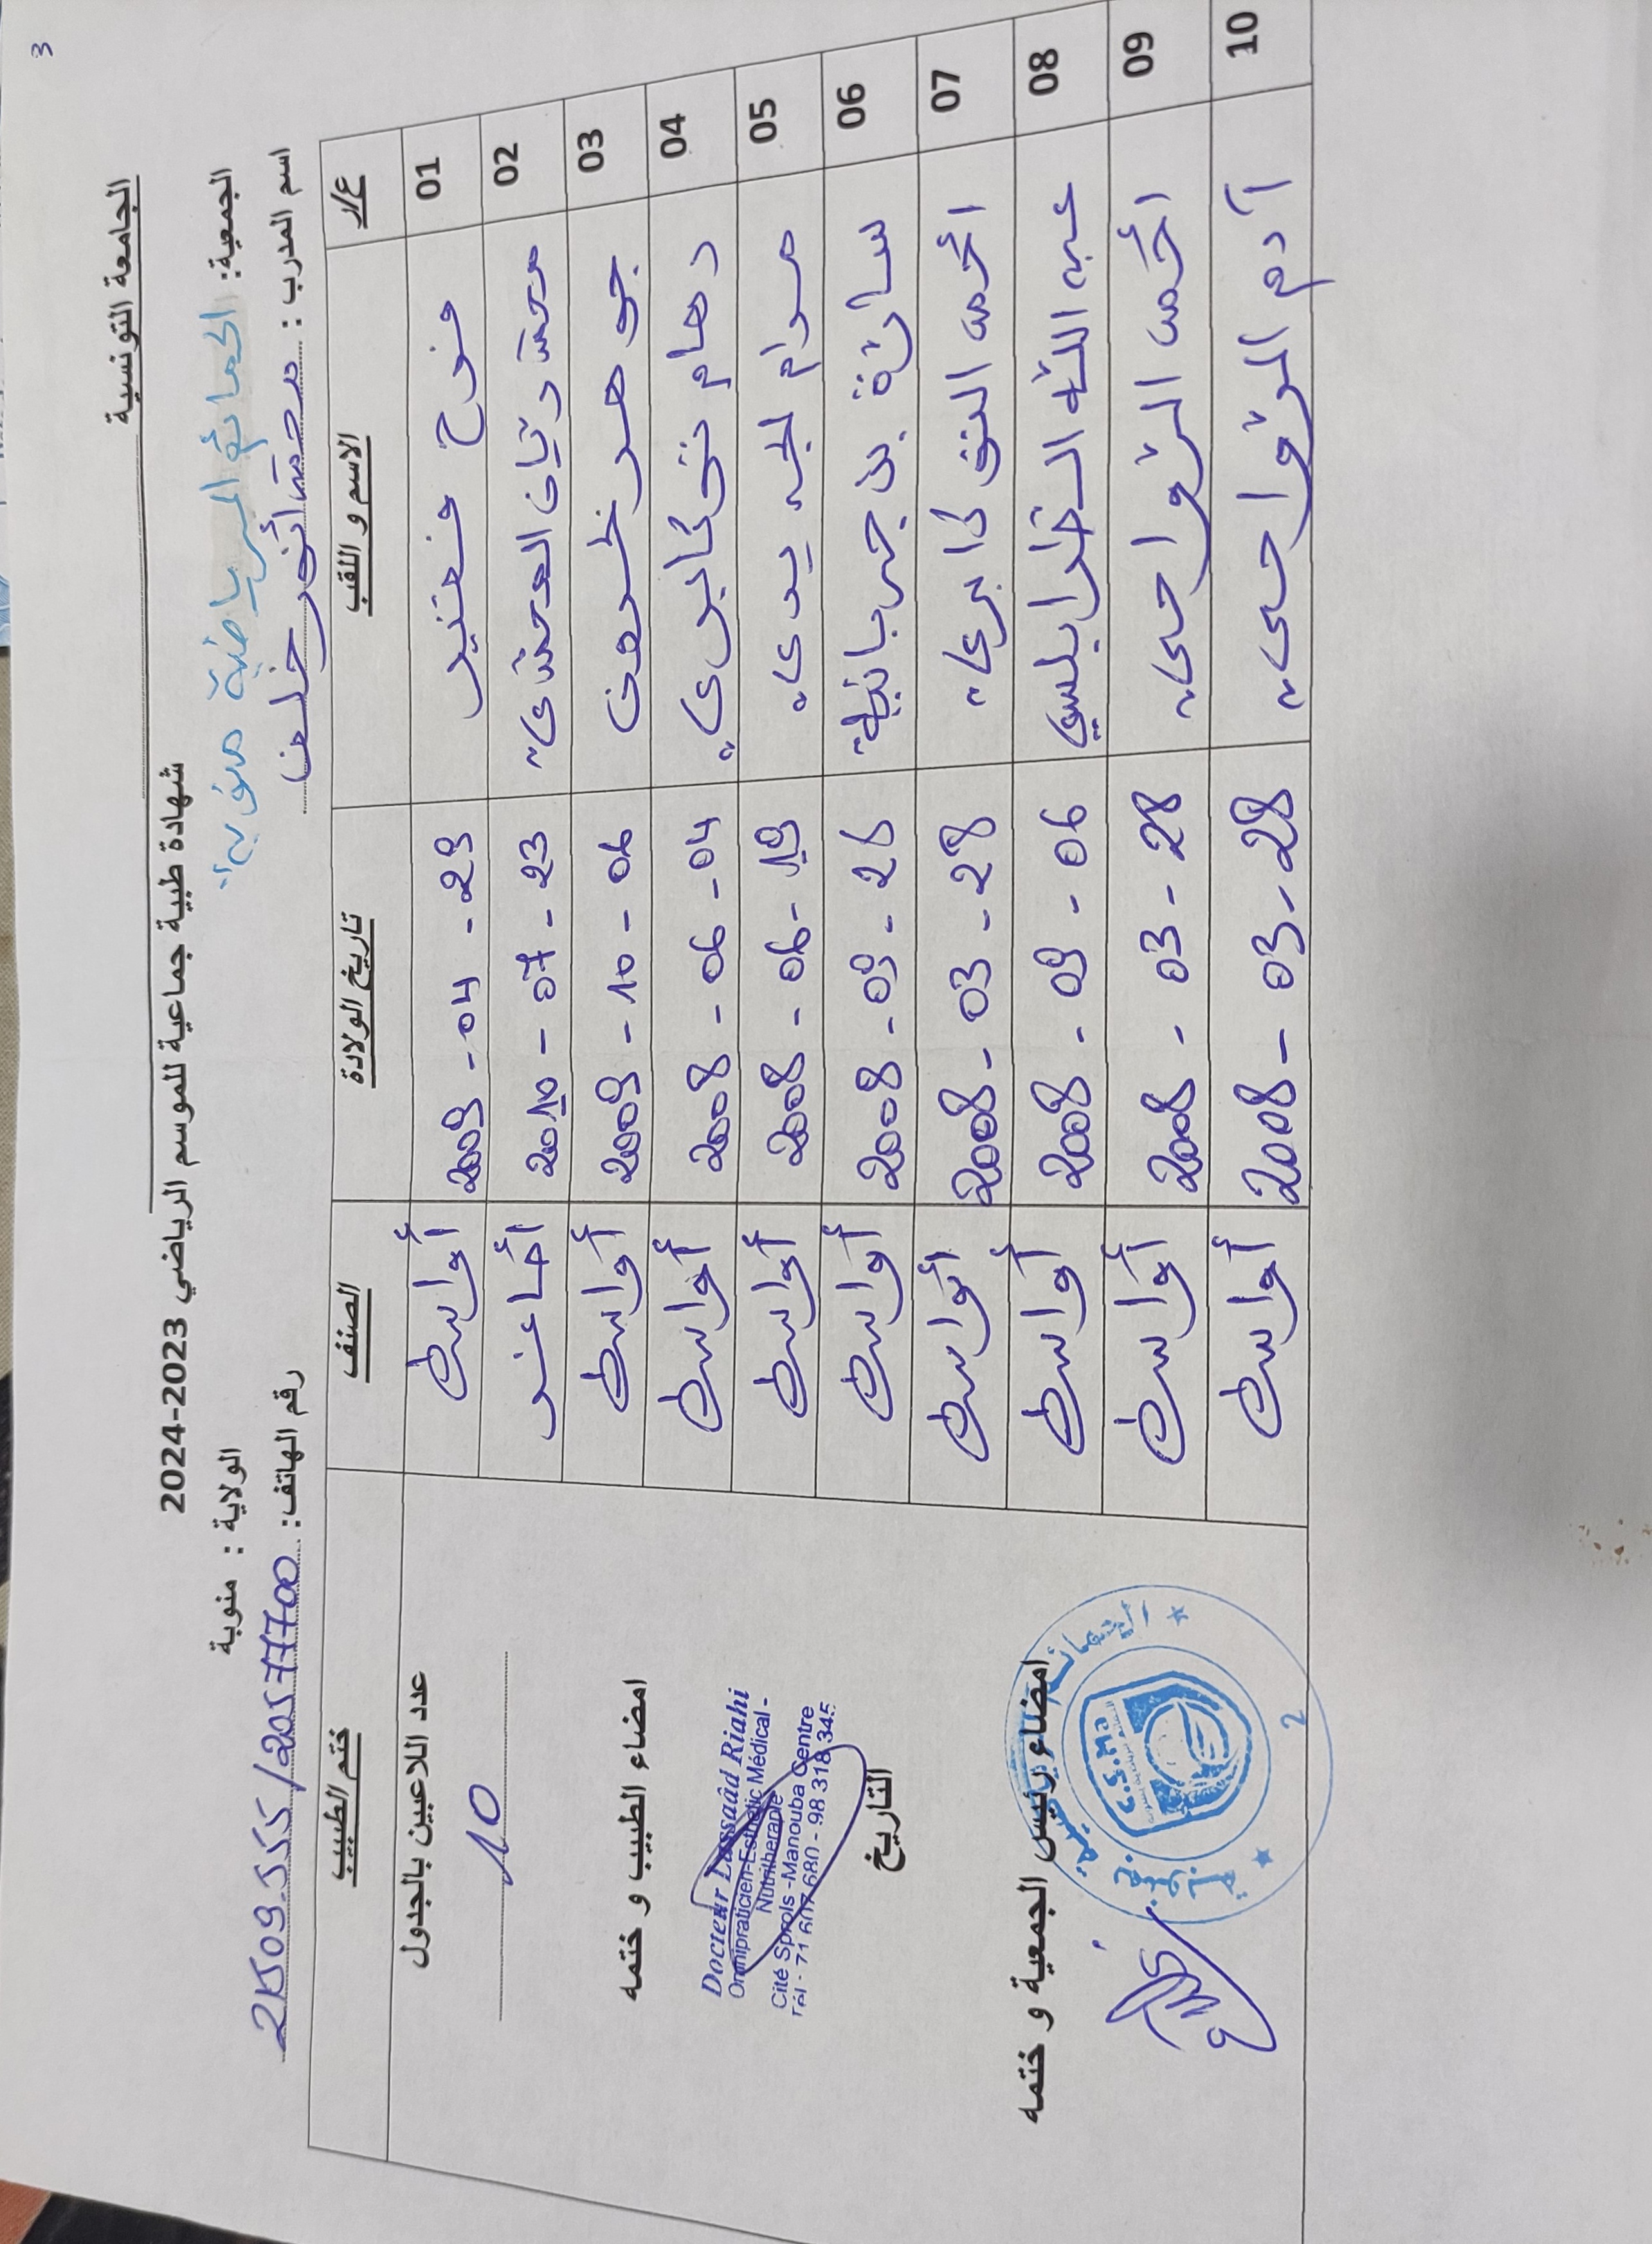 3
الجامعة التونسية
شهادة طبية جماعية للموسم الرياضي 2023-2024
الجمعية: الحمائم الرياضية منوبة الولاية : منوبة
اسم المدرب : محمد أنور خلف رقم الهاتف:
ع/ر الاسم و اللقب تاريخ الولادة الصنف ختم الطبيب
01 فرح 2009 - 04 - 29 أواسط
02 محمد ريان المحمدي 2010 - 07 - 23 أصاغر
03 جوهر خلف 2009 - 10 - 06 أواسط
04 2008 - 06 - 04 أواسط
05 مرام 2008 - 06 - 19 أواسط
06 سارة بن جبربانية 2008 - 09 - 26 أواسط
07 أحمد 2008 - 03 - 28 أواسط
08 عبد الله الطرابلسي 2008 - 09 - 06 أواسط
09 أحمد الرواحي 2008 - 03 - 28 أواسط
10 آدم الرواحي 2008 - 03 - 28 أواسط
عدد اللاعبين بالجدول
10
امضاء الطبيب و ختمه
Docteur Lassaâd Riahi
Omnipraticien-Esthetic Médical -
Nutritherapie
Cité Sprols -Manouba Centre
Tél - 71 607 680 - 98 318 345
التاريخ
امضاء رئيس الجمعية و ختمه
C.S.Ma
2